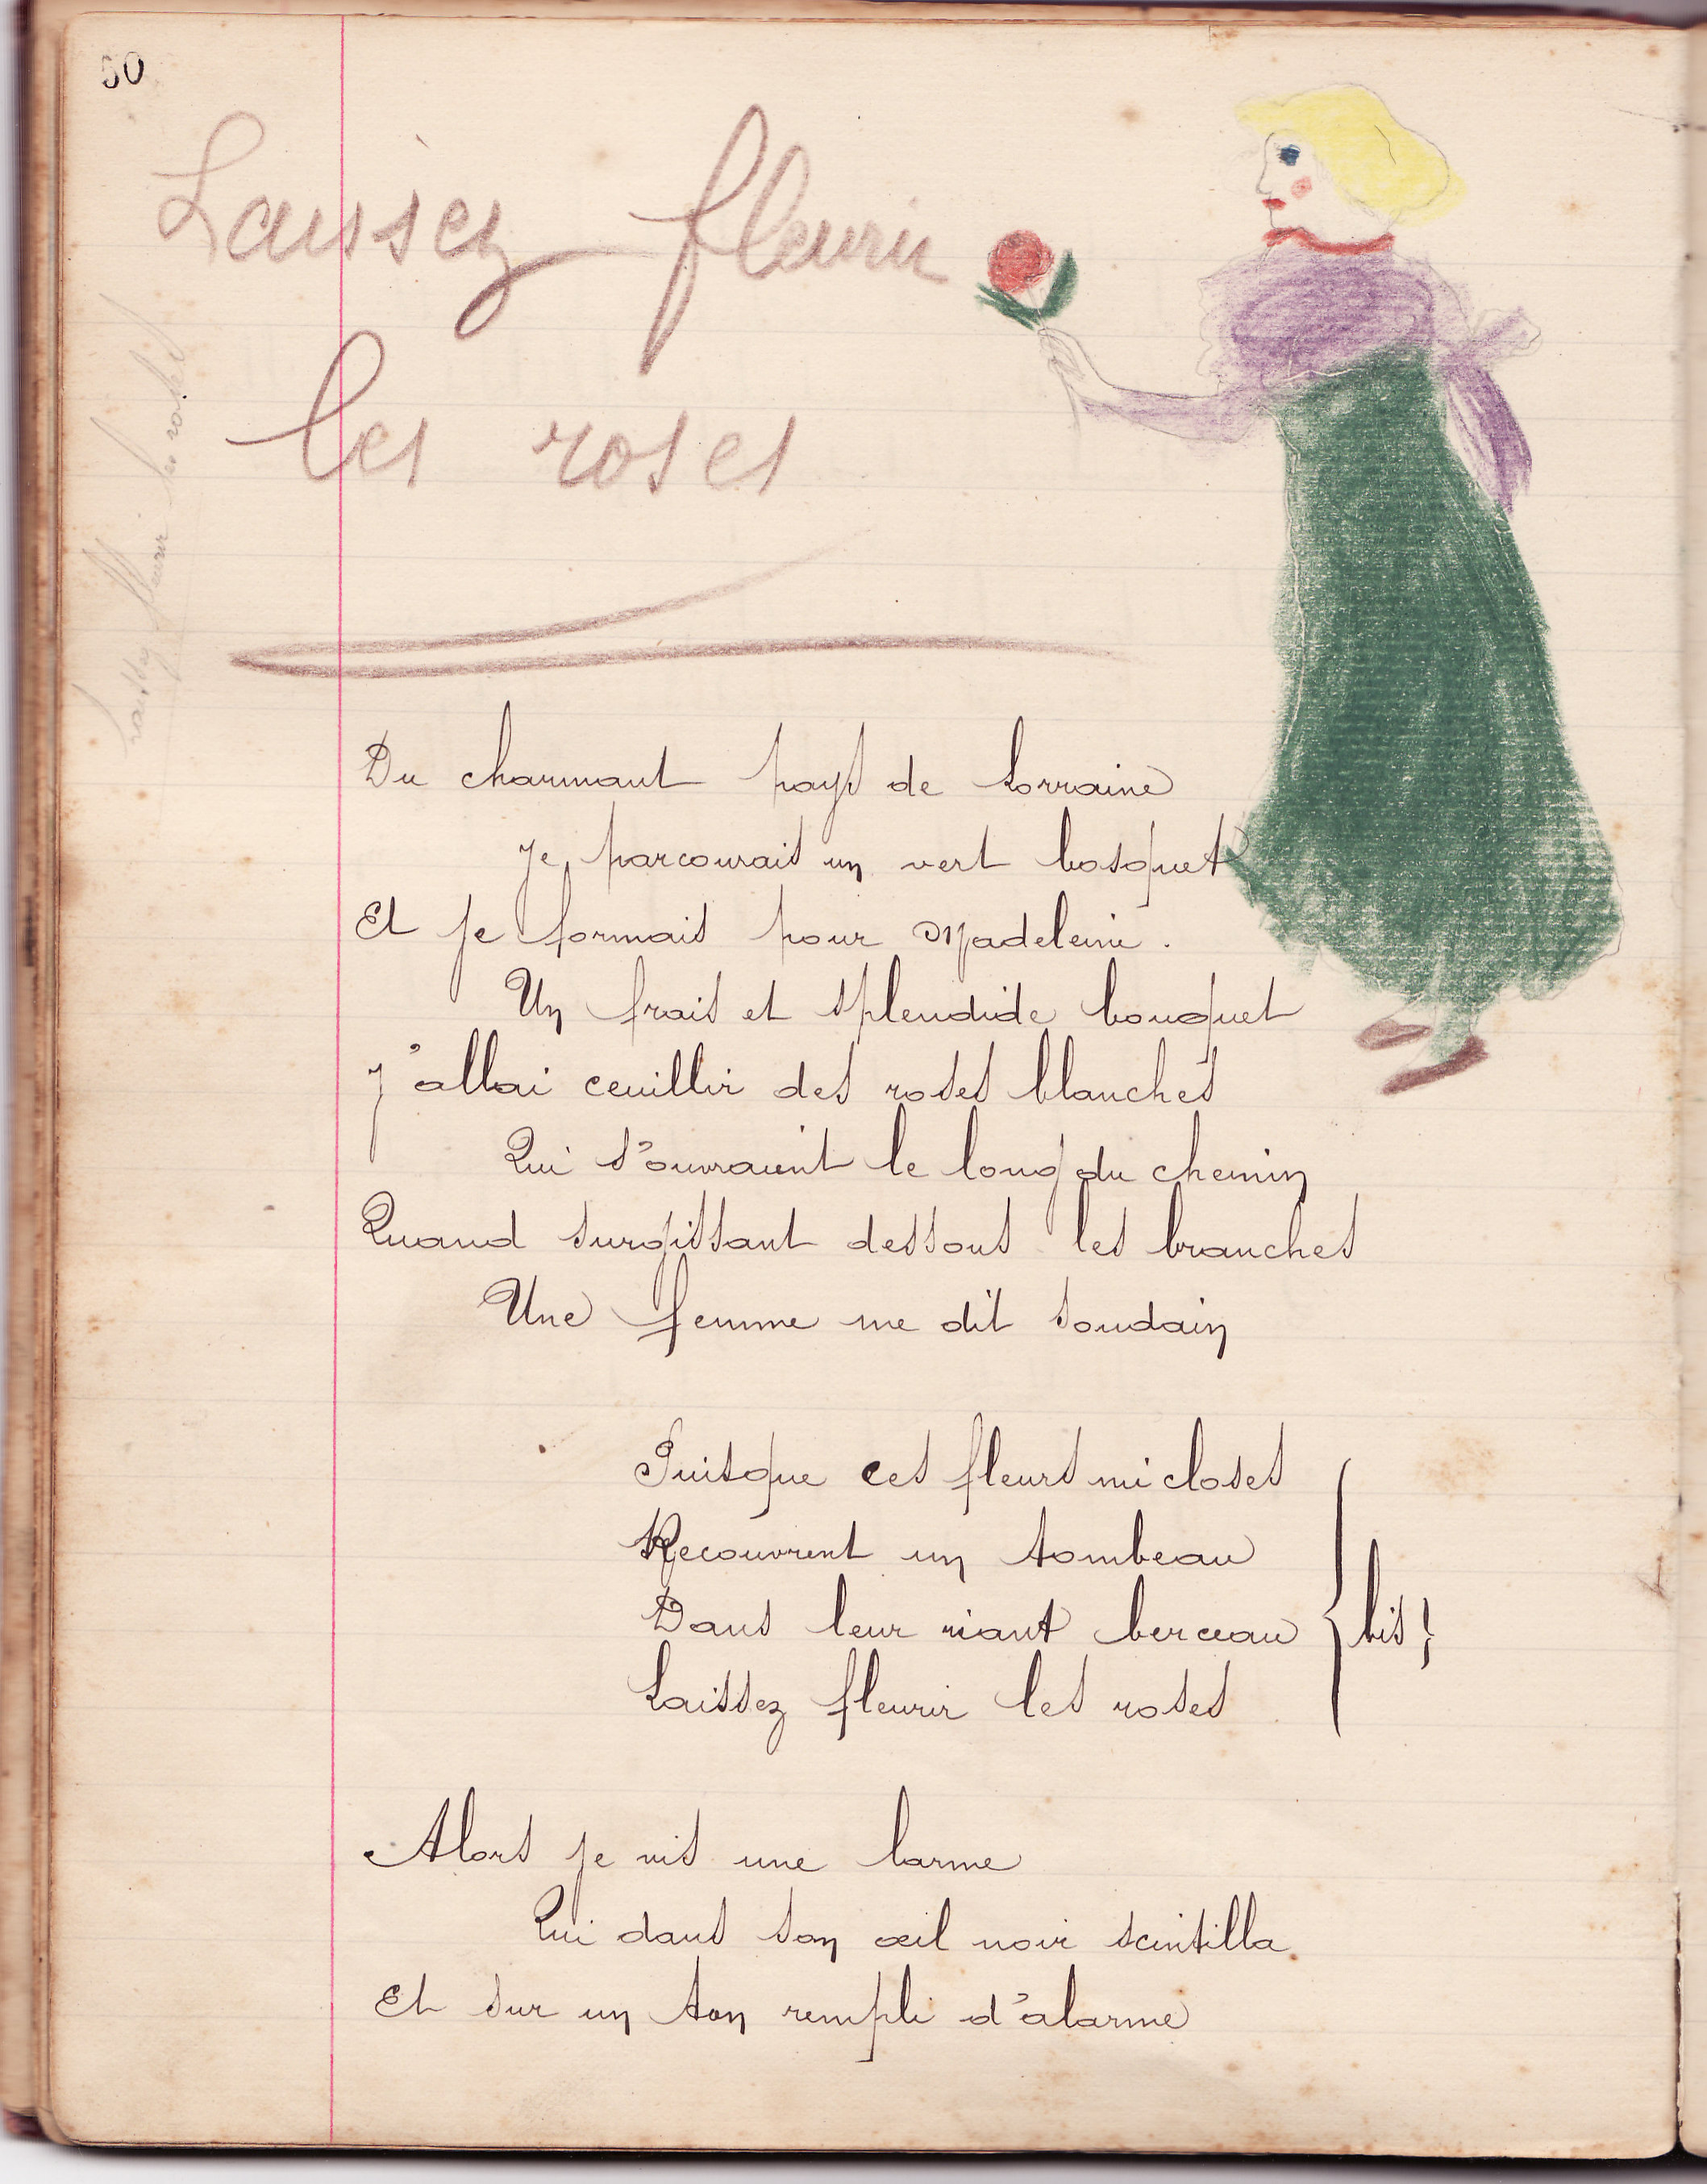 50
Laissez fleurir
les roses
Laissez fleurir les roses
Du charmant pays de Lorraine
Je parcourais un vert bosquet
Et je formais pour Madeleine.
Un frais et splendide bouquet
J'allai ceuillir des roses blanches
Qui s'ouvraient le long du chemin
Quand surgissant dessous les branches
Une femme me dit soudain
Puisque ces fleurs mi closes
Recouvrent un tombeau
Dans leur riant berceau } bis }
Laissez fleurir les roses
Alors je vis une larme
Qui dans son œil noir scintilla
Et sur un ton rempli d'alarme